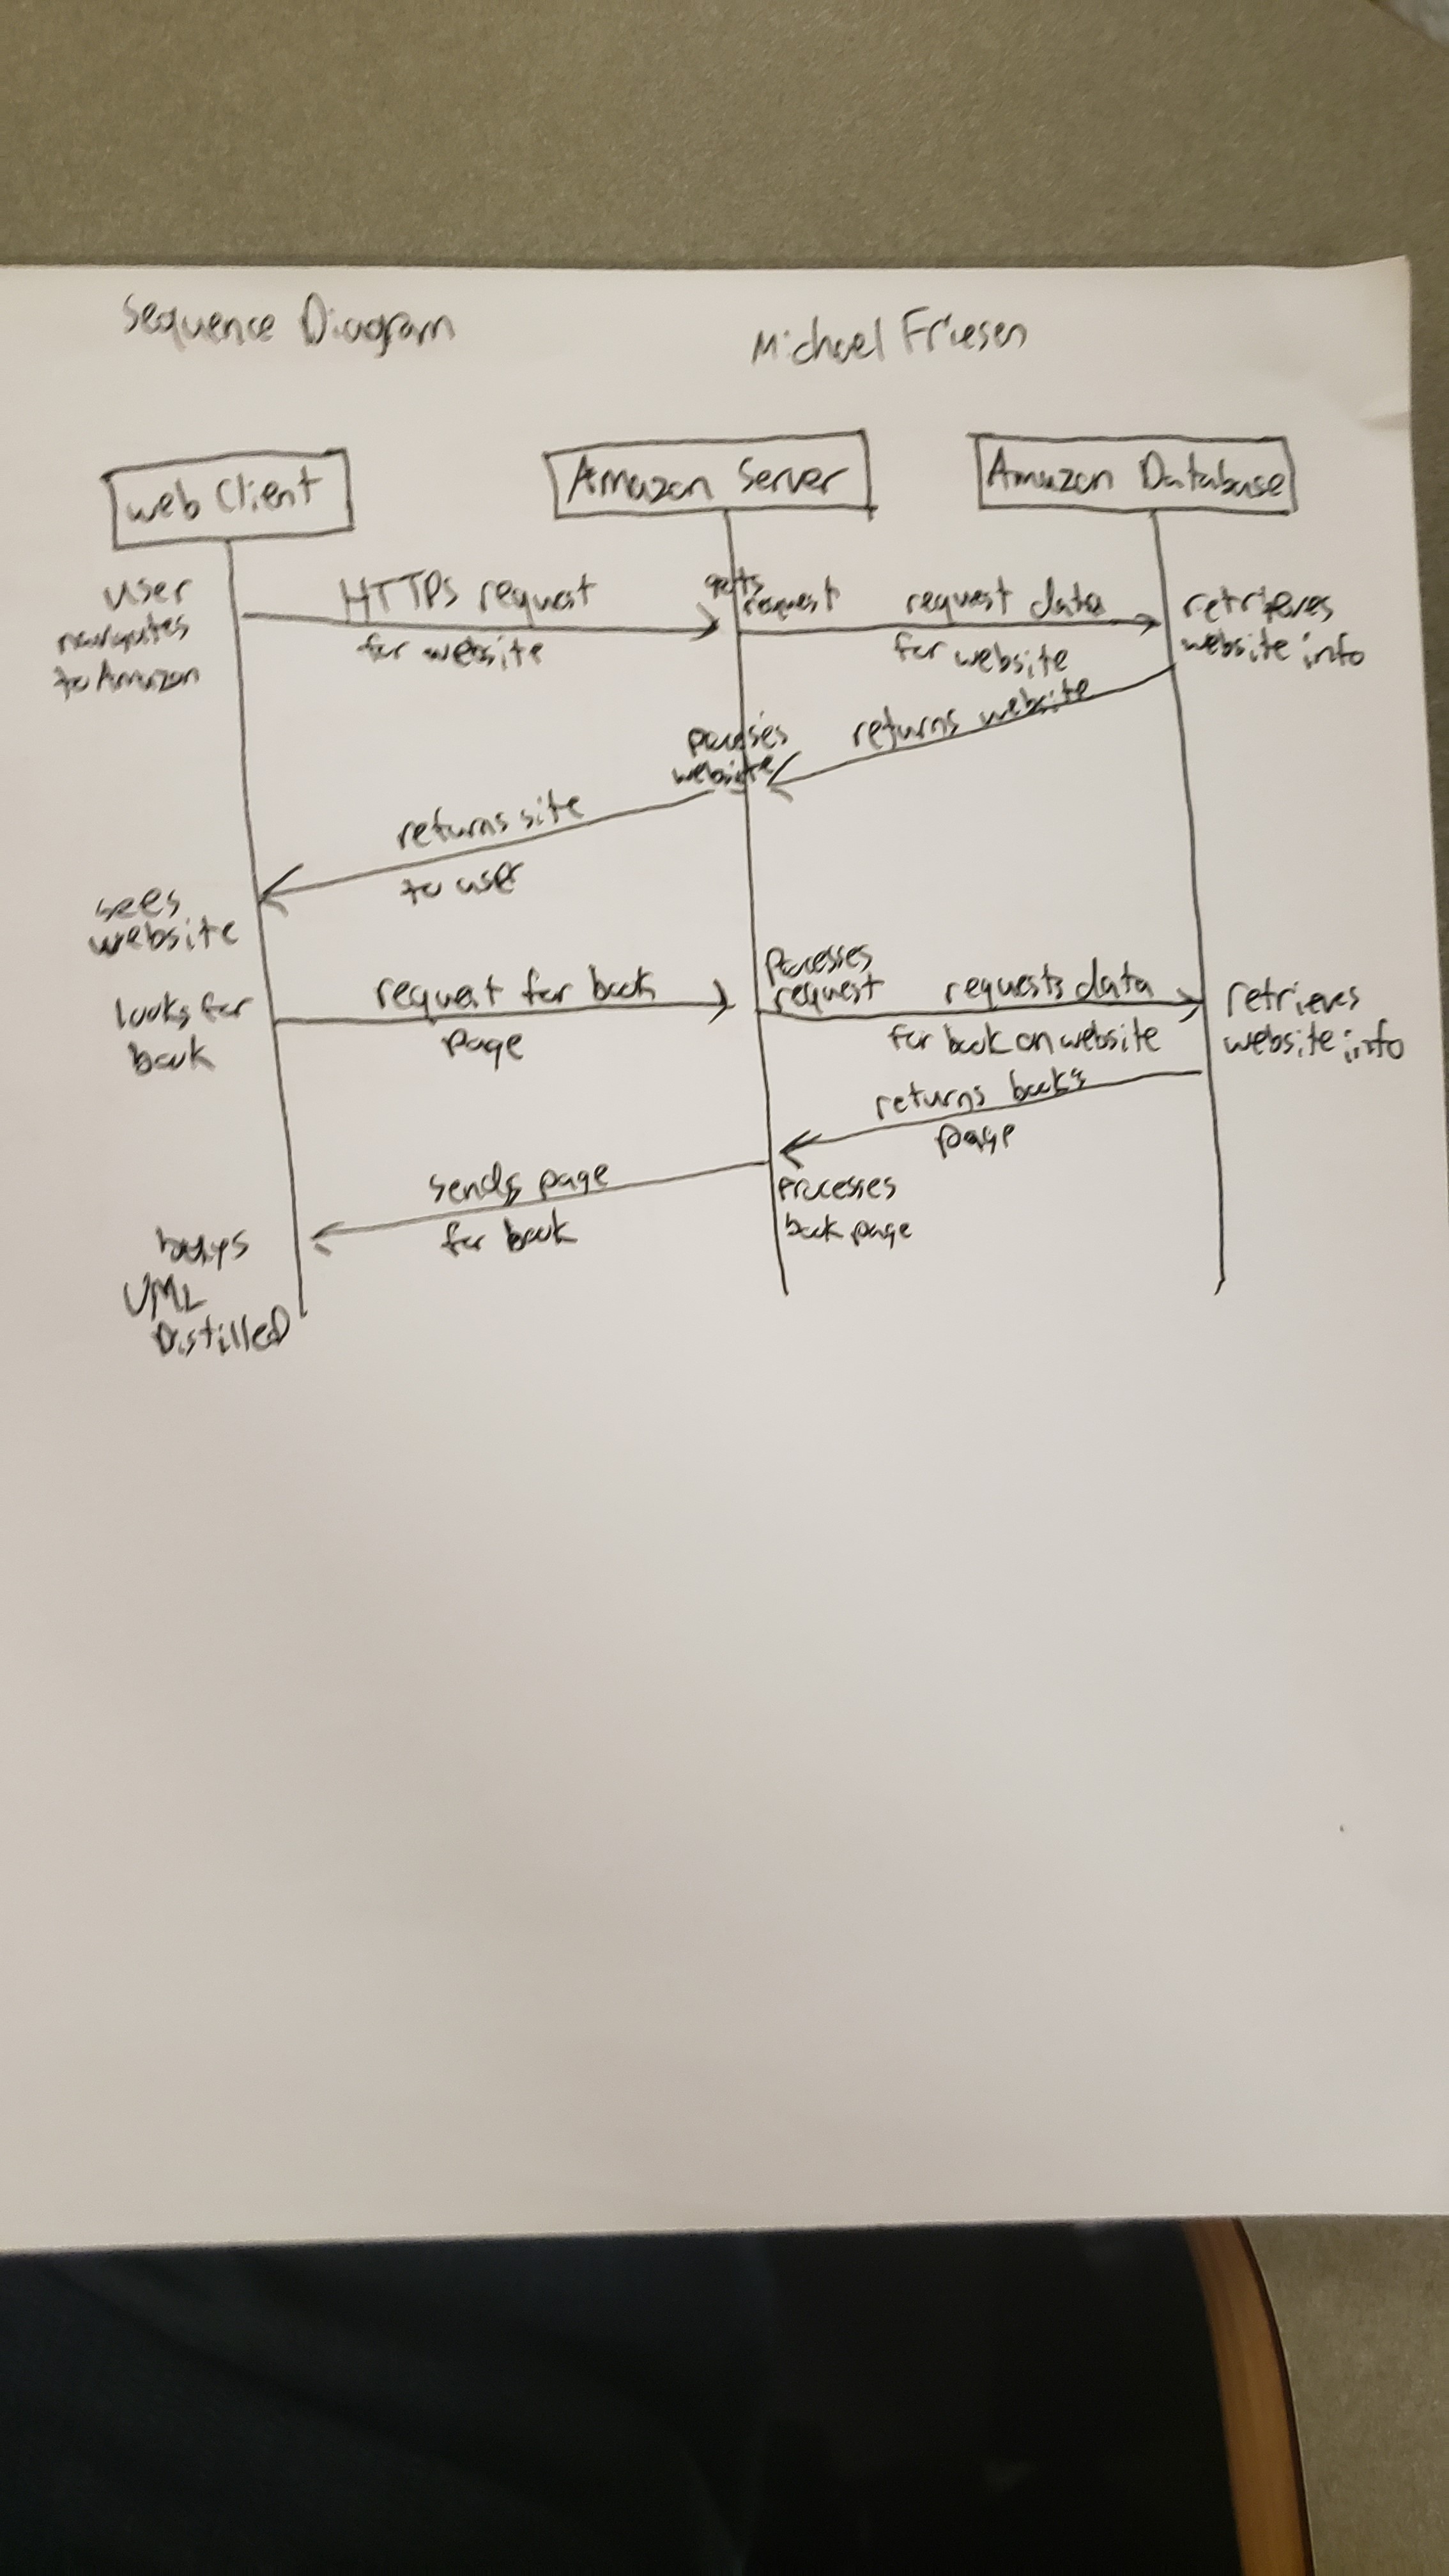 Sequence Diagram
Michael Friesen
web Client
Amazon Server
Amazon Database
User
navigates
to Amazon
HTTPs request
for website
gets
request
request data
for website
retrieves
website info
returns website
website
returns site
to user
sees
website
looks for
book
request for book
page
Processes
request
requests data
for book on website
retrieves
website info
returns book's
page
Processes
book page
sends page
for book
buys
UML
Distilled